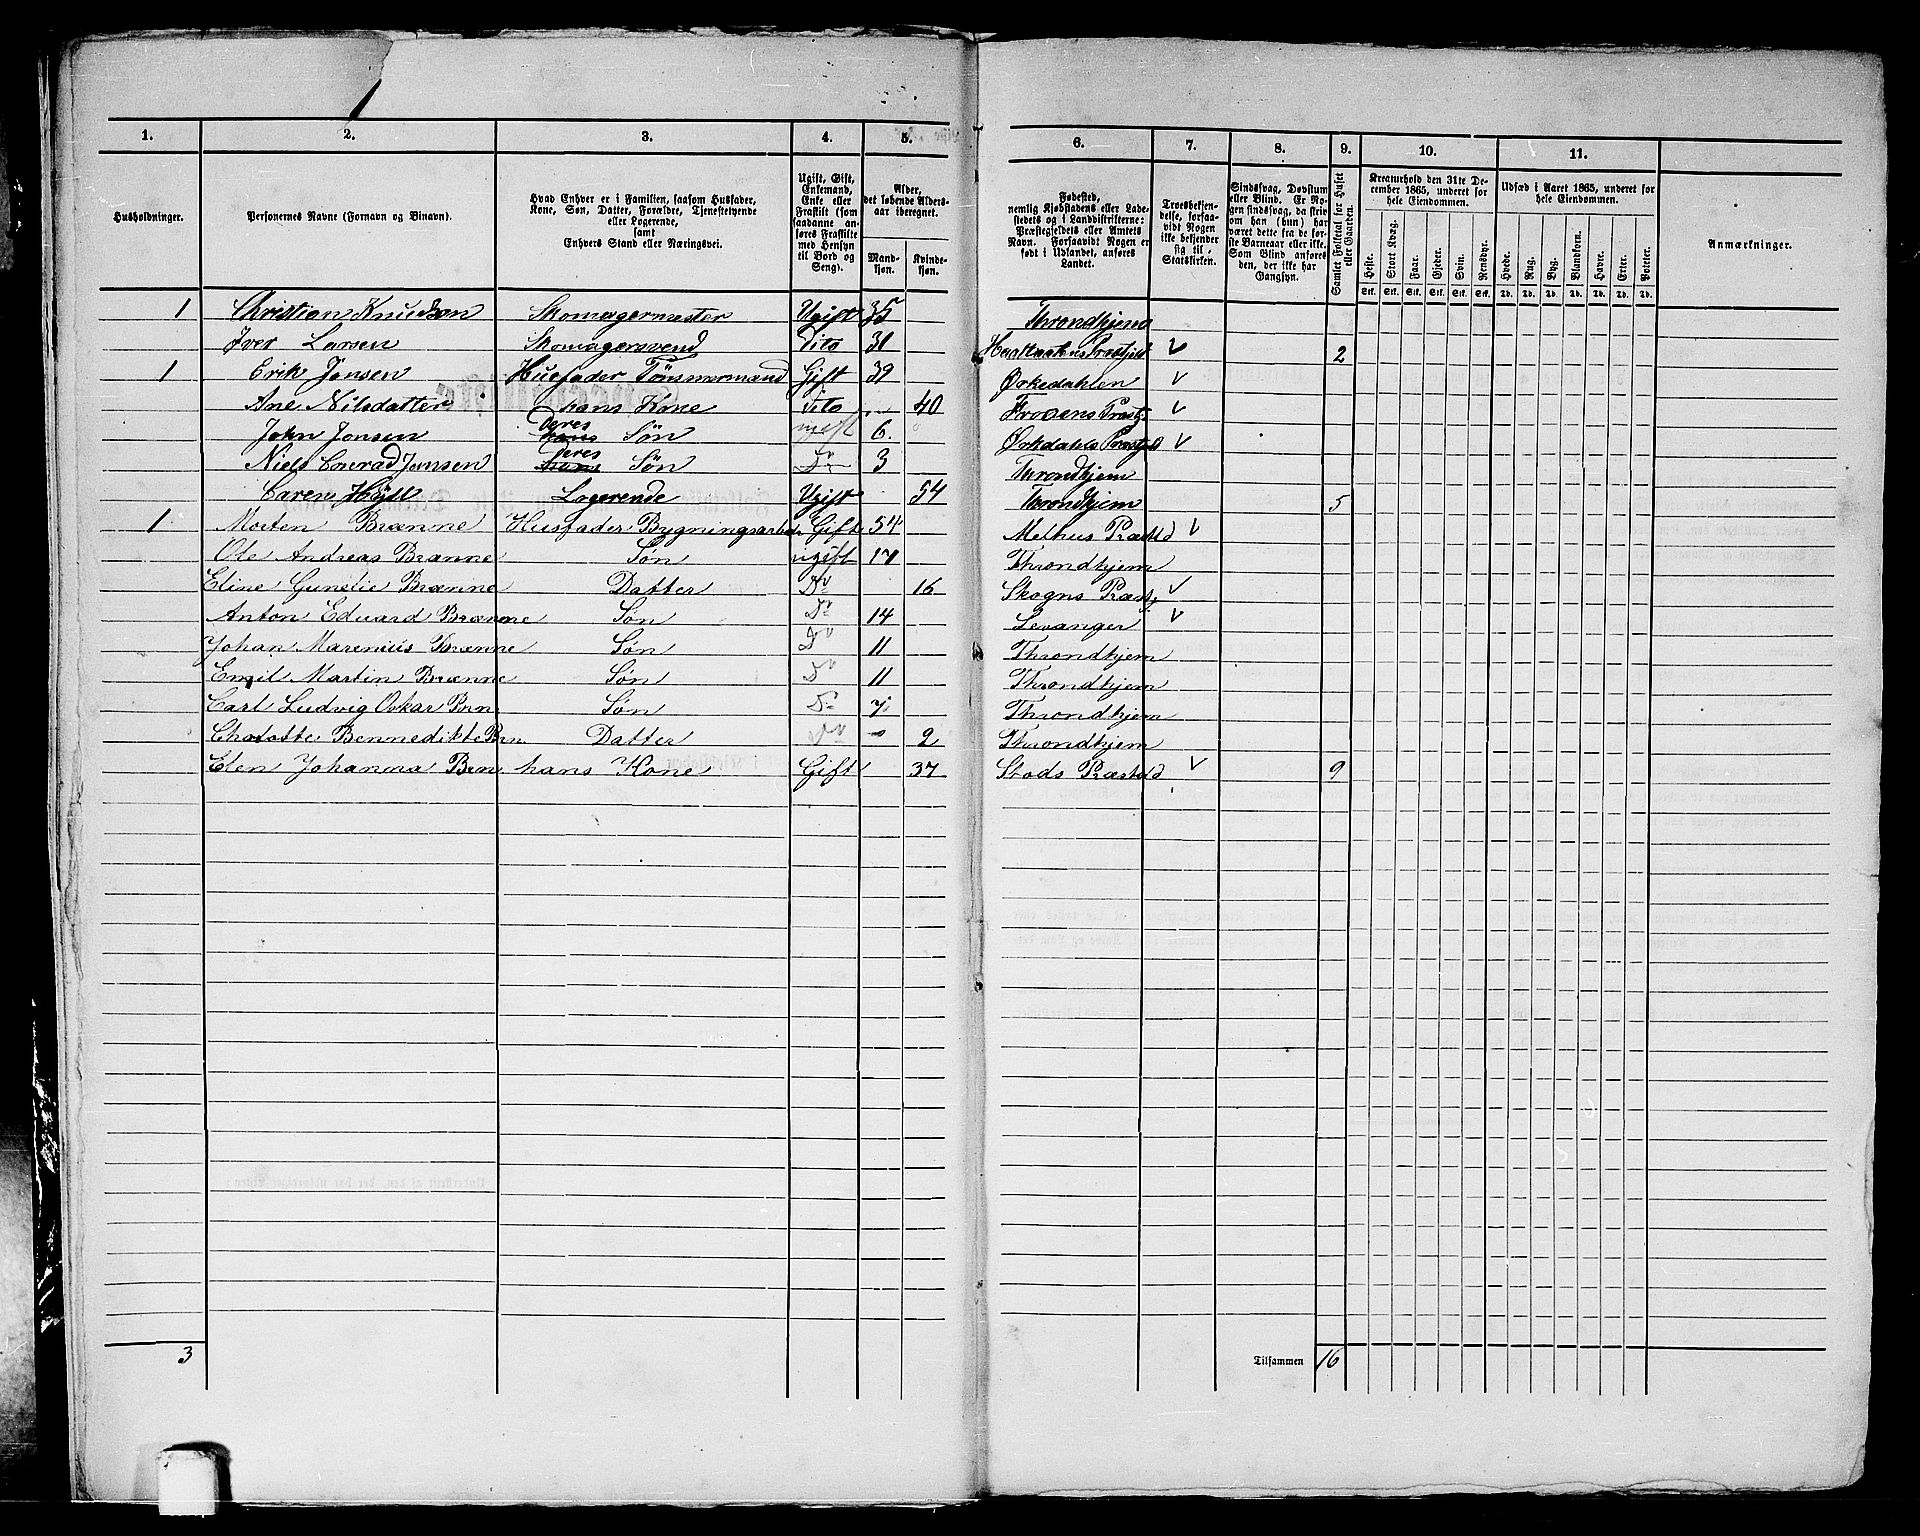 1. 2. 3. 4. 5. 6. 7. 8. 9. 10. 11.
Husholdninger.
Personernes Navne (Fornavn og Binavn).
Hvad Enhver er i Familien, saasom Husfader, Kone, Søn, Datter, Forældre, Tjenestetyende eller Logerende, samt Enhvers Stand eller Næringsvei.
Ugift, Gift, Enkemand, Enke eller Fraskilt (som saadanne anføres Fraskilte med Hensyn til Bord og Seng).
Alder, det løbende Aldersaar iberegnet.
Mandkjøn. Kvindekjøn.
Fødested, nemlig Kjøbstadens eller Ladestedets og i Landdistrikterne: Præstegjeldets eller Amtets Navn. Forsaavidt Nogen er født i Udlandet, anføres Landet.
Troesbekjendelse, forsaavidt Nogen ikke bekjender sig til Statskirken.
Sindssvag, Døvstum eller Blind. Er Nogen sindssvag, da skrives, om han (hun) har været dette fra de første Barneaar eller ikke. Som Blind anføres den, der ikke har Gangsyn.
Samlet Folketal for Huset eller Gaarden.
Kreaturhold den 31te December 1865, underet for hele Eiendommen.
Heste. Stort Kvæg. Faar. Gjeder. Svin. Rensdyr.
Stk. Stk. Stk. Stk. Stk. Stk.
Udsæd i Aaret 1865, underet for hele Eiendommen.
Hvede. Rug. Byg. Blandkorn. Havre. Erter. Poteter.
Td. Td. Td. Td. Td. Td. Td.
Anmærkninger.
1 Christian Knudson Skomagermester Ugift 35 Throndhjem
Iver Larsen Skomagersvend Dito 31 2
1 Erik Jonsen Husfader Tømmermand Gift 39 Ørkedahlen
Ane Nilsdatter hans Kone Dito 40 Præstg.
John Jonsen Deres Søn ugift 6. Ørkdahls Præstgjld
Niels Conrad Jonsen Deres Søn Do 3 Throndhjem
Caren Logerende Ugift 54 Throndhjem 5
1 Morten Brænne Husfader Bygningsarbeider Gift 54 Melhus Præstgld
Ole Andreas Brænne Søn ugift 17 Throndhjem
Eline Gunelie Brænne Datter Do 16 Skogns Præstg
Anton Eduard Brænne Søn Do 14 Levanger
Johan Marenius Brænne Søn Do 11 Throndhjem
Emil Martin Brænne Søn Do 11 Throndhjem
Carl Ludvig Oskar Brn Søn Do 7 Throndhjem
Charlotte Bennedikte Brn Datter Do 2 Throndhjem
Elen Johanna Brn hans Kone Gift 37 Stods Præstgld 9
3 Tilsammen 16